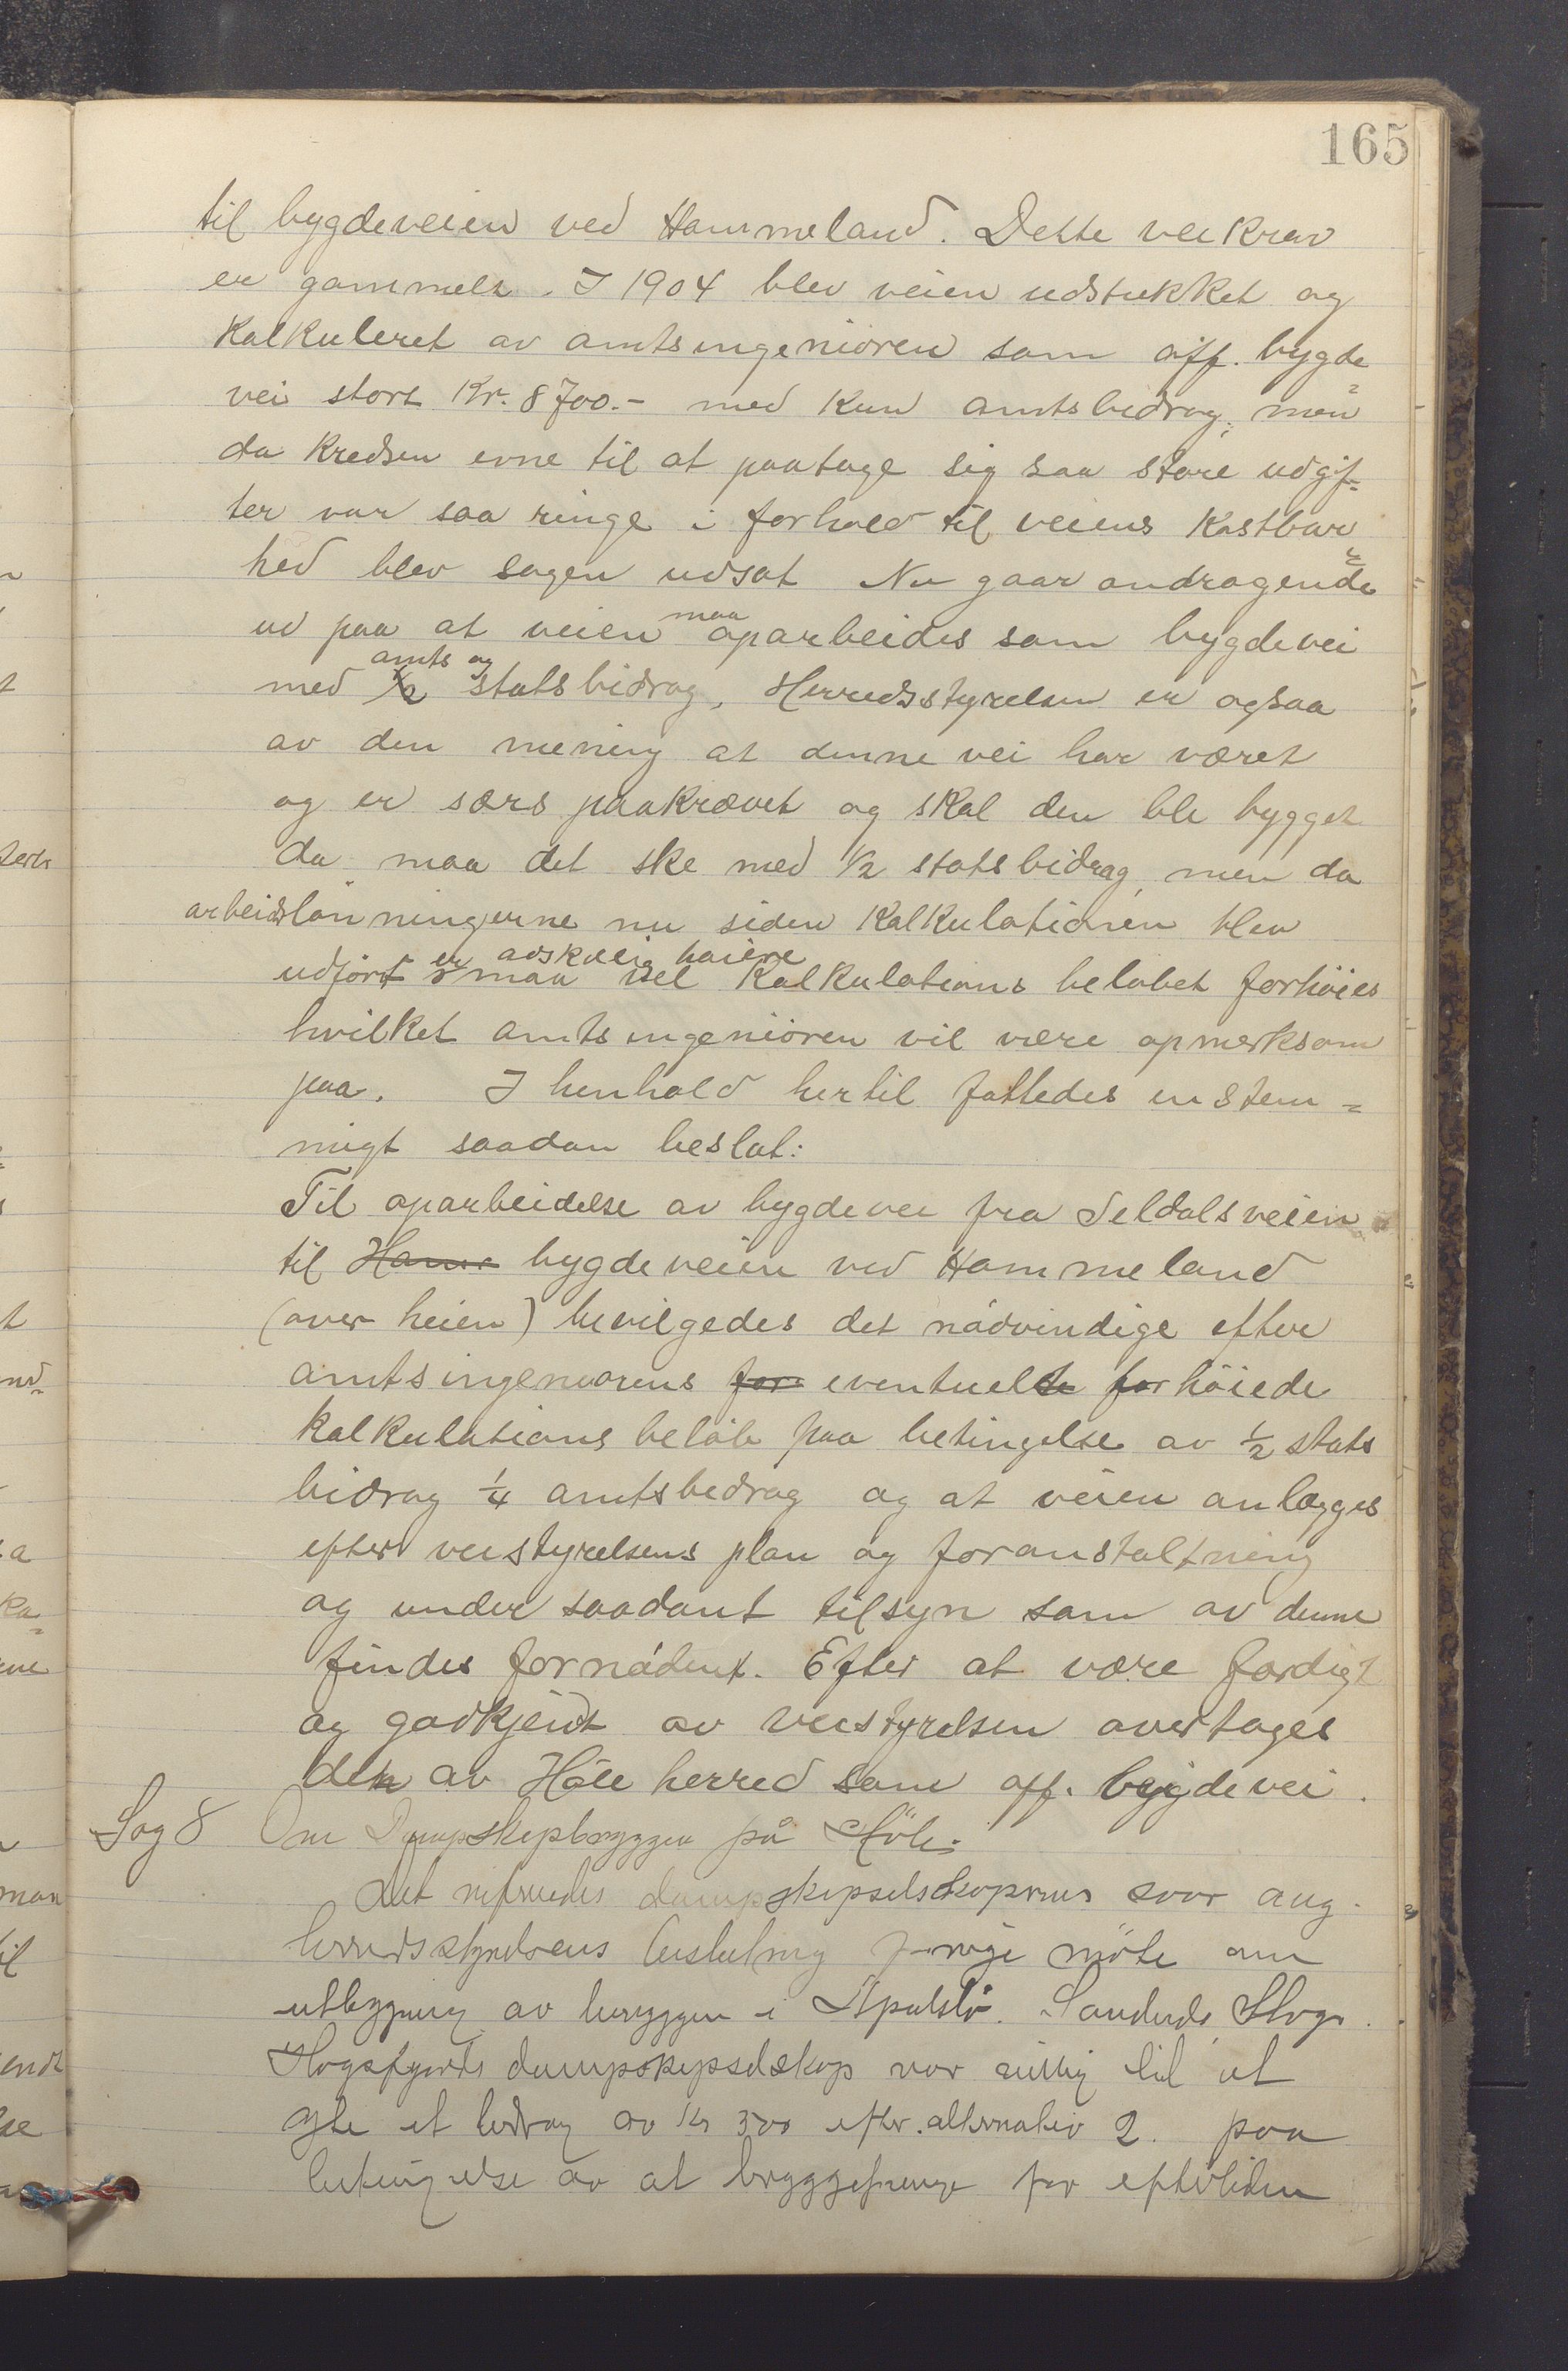 165
til bygdeveien ved Hammeland. Dette veikrav
er gammelt. I 1904 blev veien udstukket og
kalkuleret av amtsingeniøren som off. bygde
vei stort Kr. 8700.- med kun amtsbidrag; men
da kredsen evne til at paatage sig saa store udgif=
ter var saa ringe i forhold til veiens kostbar=
hed blev sagen udsat Nu gaar andragende
ud paa at veien maa oparbeides som bygdevei
med 1/2 amts og statsbidrag, Herredsstyrelsen er ogsaa
av den mening at denne vei har været
og er særs paakrævet og skal den ble bygget
da maa det ske med 1/2 statsbidrag, men da
arbeidslønningerne nu siden kalkulationen blev
udført er adskilig høiere maa vel kalkulations beløbet forhöies
hvilket amtsingeniøren vil være opmerksom
paa. I henhold hertil fattedes enstem=
migt saadan beslut:
Til oparbeidelse av bygdevei fra Seldalsveien
til Hame bygdeveien ved Hammeland
(over heien) bevilgedes det nødvindige efter
amtsingeniørens for eventuelte forhöiede
kalkulations beløb paa betingelse av 1/2 stats
bidrag 1/4 amtsbidrag og at veien anlægges
efter veistyrelsens plan og foranstaltning
og under saadant tilsyn som av denne
findes fornødent. Efter at være færdigt
og godkjendt av veistyrelsen overtages
den av Høle herred som off. bygdevei.
Sag 8 Om Dampskipbryggen på Höle.
Det refereredes dampskipselskapernes svar ang.
herredsstyrelsens beslutning forrige möte om
utbygning av bryggen i Apalstø. Sandnes
Høgsfjords dampskipselskap var villig til at
yte et bidrag av Kr 300 efter alternativ 2. paa
betingelse av at bryggepenge for eftertiden